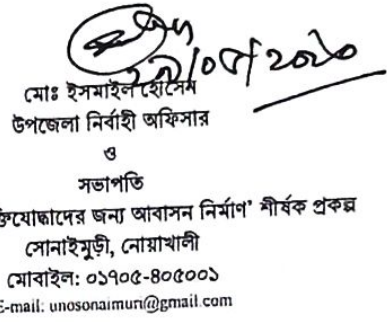 মোঃ ইসমাইল হোসেন
উপজেলা নির্বাহী অফিসার
ও
সভাপতি
জন্য আবাসন নির্মাণ' শীর্ষক প্রকল্প
সোনাইমুড়ী, নোয়াখালী
মোবাইল: ০১৭০৫-৪০৫০০১
E-mail: unosonaimuri@gmail.com